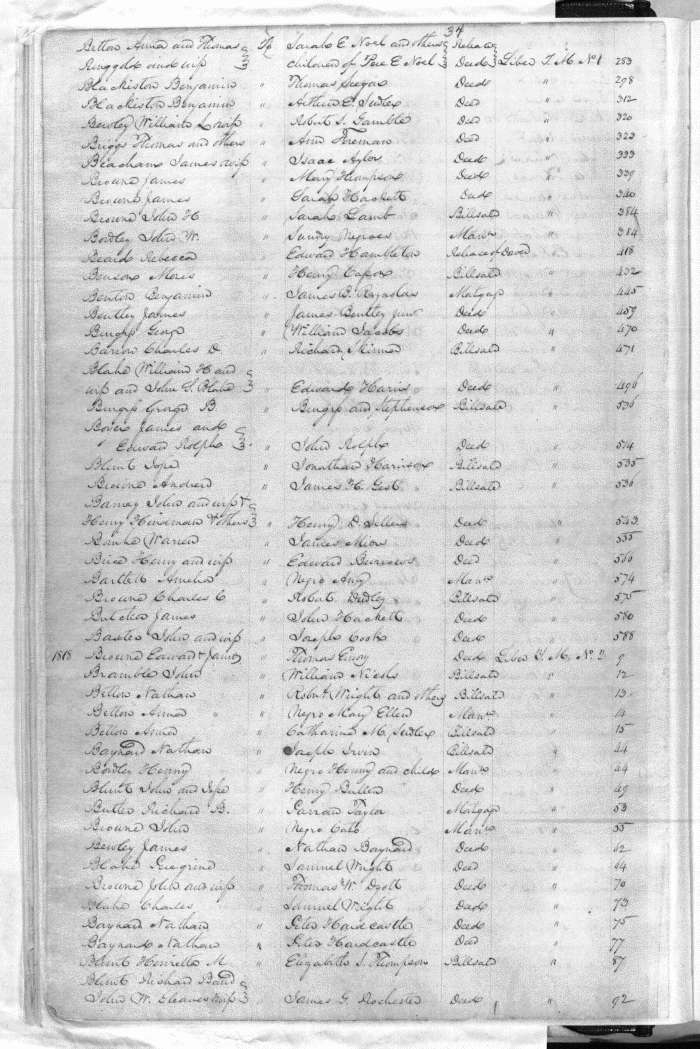 34
Betton Anna and Thomas To Sarah E Noel and others Release
Ringgold and wife children of E Noel Deed Liber T. M. No 1 283
Blackiston Benjamin " Thomas Seegar Deed " 298
Blackiston Benjamin " Arthur E. Sudler Deed " 312
Bewley William & wife " Robert S. Gamble Deed " 320
Briggs Thomas and others " Ann Foreman Deed " 323
Beacham James & wife " Isaac Aylor Deed " 333
Browne James " Mary Thompson Deed " 339
Browne James " Sarah Hackett Deed " 340
Browne John H " Sarah Lamb Billsale " 384
Bordley John W. " Sundry Negroes Manu " 384
Beard Rebecca " Edward Hambleton Release of Dower " 418
Benson " Henry Billsale " 432
Benton Benjamin " James B. Mortgage " 445
Bentley James " James Bentley junr Deed " 459
Burgess George " William Jacobs Deed " 470
Barron Charles D. " Richard Skinner Billsale " 471
Blake William H and
wife and John S. Blake " Edward Harris Deed " 496
Burgess George B " Burgess and Stephenson Billsale " 536
James and
Edward Rolph " John Rolph Deed " 574
Blunt " Jonathan Harrison Billsale " 535
Browne Andrew " James H. Gest Billsale " 536
Barney John and wife &
Henry Hindman & others " Henry D. Sellers Deed " 543
Warren " James Deed " 555
Henry and wife " Edward Burrows Deed " 566
Bartlett Amelia " Negro Amy Manu " 574
Browne Charles C " Robert Dudley Billsale " 575
Butcher James " John Hackett Deed " 580
Baxter John and wife " Joseph Cook Deed " 588
1818 Browne Edward & James " Thomas Emory Deed Liber T. M. No. 2 9
Bramble John " William Nicols Billsale " 12
Betton Nathan " Robert Wright and others Billsale " 13
Betton Anna " Negro Mary Ellen Manu " 14
Betton Anna " Catharine M. Sudler Billsale " 15
Baynard Nathan " Joseph Irvin Billsale " 44
Bordley Henny " Negro Henny and child Manu " 44
Blunt John and " Henry Bullen Deed " 49
Butler Richard B. " Taylor Mortgage " 53
Browne John " Negro Cato Manu " 55
Bewley James " Nathan Baynard Deed " 62
Blake Peregrine " Samuel Wright Deed " 64
Browne John and wife " Thomas W. Dyott Deed " 70
Blake Charles " Samuel Wright Deed " 73
Baynard Nathan " Peter Hardcastle Deed " 75
Baynard Nathan " Peter Hardcastle Deed " 77
Blunt Henrietta M. " Elizabeth S. Thompson Billsale " 87
Blunt Richard B and
John W. Gleaves & wife " James G. Rochester Deed " 92